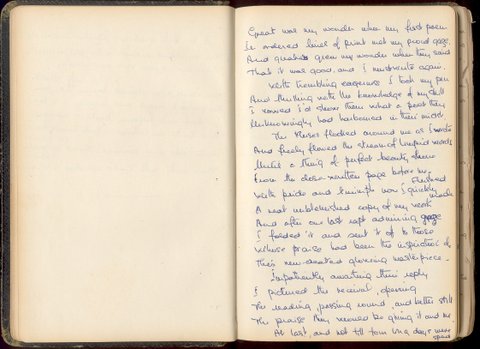 Great was my wonder when my first poem
In ordered lines of print met my proud gaze,
And greater grew my wonder when they said
That it was good, and I must write again.
With trembling eagerness I took my pen
And thrilling with the knowledge of my skill
I vowed I'd show them what a poet they
Unknowingly had harboured in their midst.
The Muses flocked around me as I wrote
And freely flowed the stream of limpid words
Until a thing of perfect beauty shone
From the close-written page before me.
With pride and triumph now I quickly Flushed
made
A neat unblemished copy of my work
And after one last rapt admiring gaze
I folded it and sent it off to those
Whose praise had been the inspiration of
This new-created glowing masterpiece.
Impatiently awaiting their reply
I pictured the arrival, opening
The reading, passing round, and better still
The praise they would be giving it and me.
At last, and not till four long days were
spent